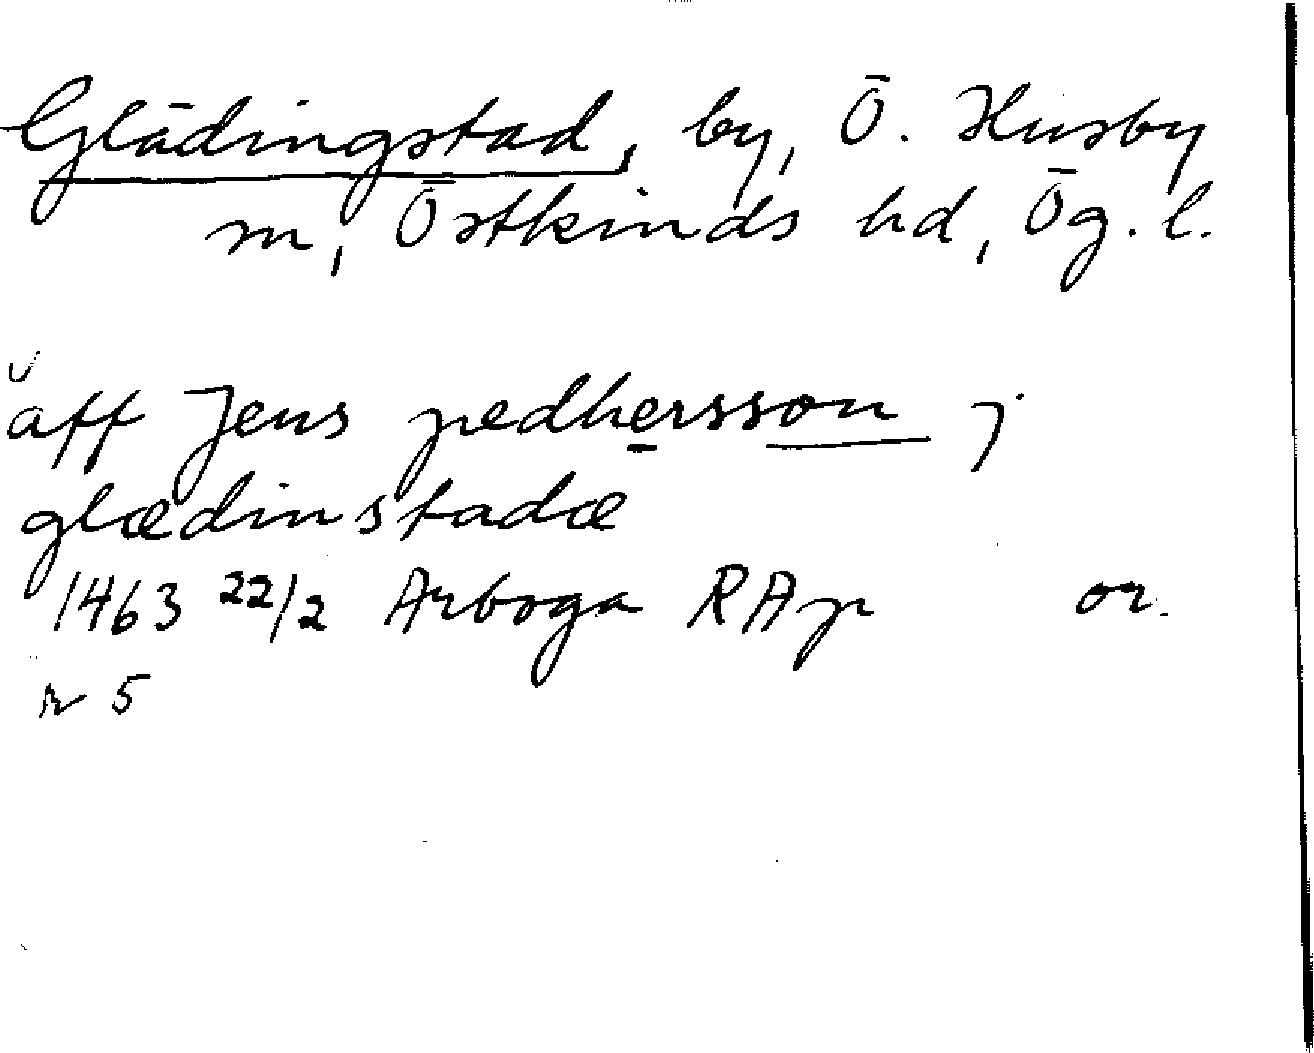 Glädingstad, by, Ö. Husby
sn, Östkinds hd, Ög. l.
aff Jens pedhersson j
glædinstadæ
1463 22/2 Arboga RAp or.
r 5